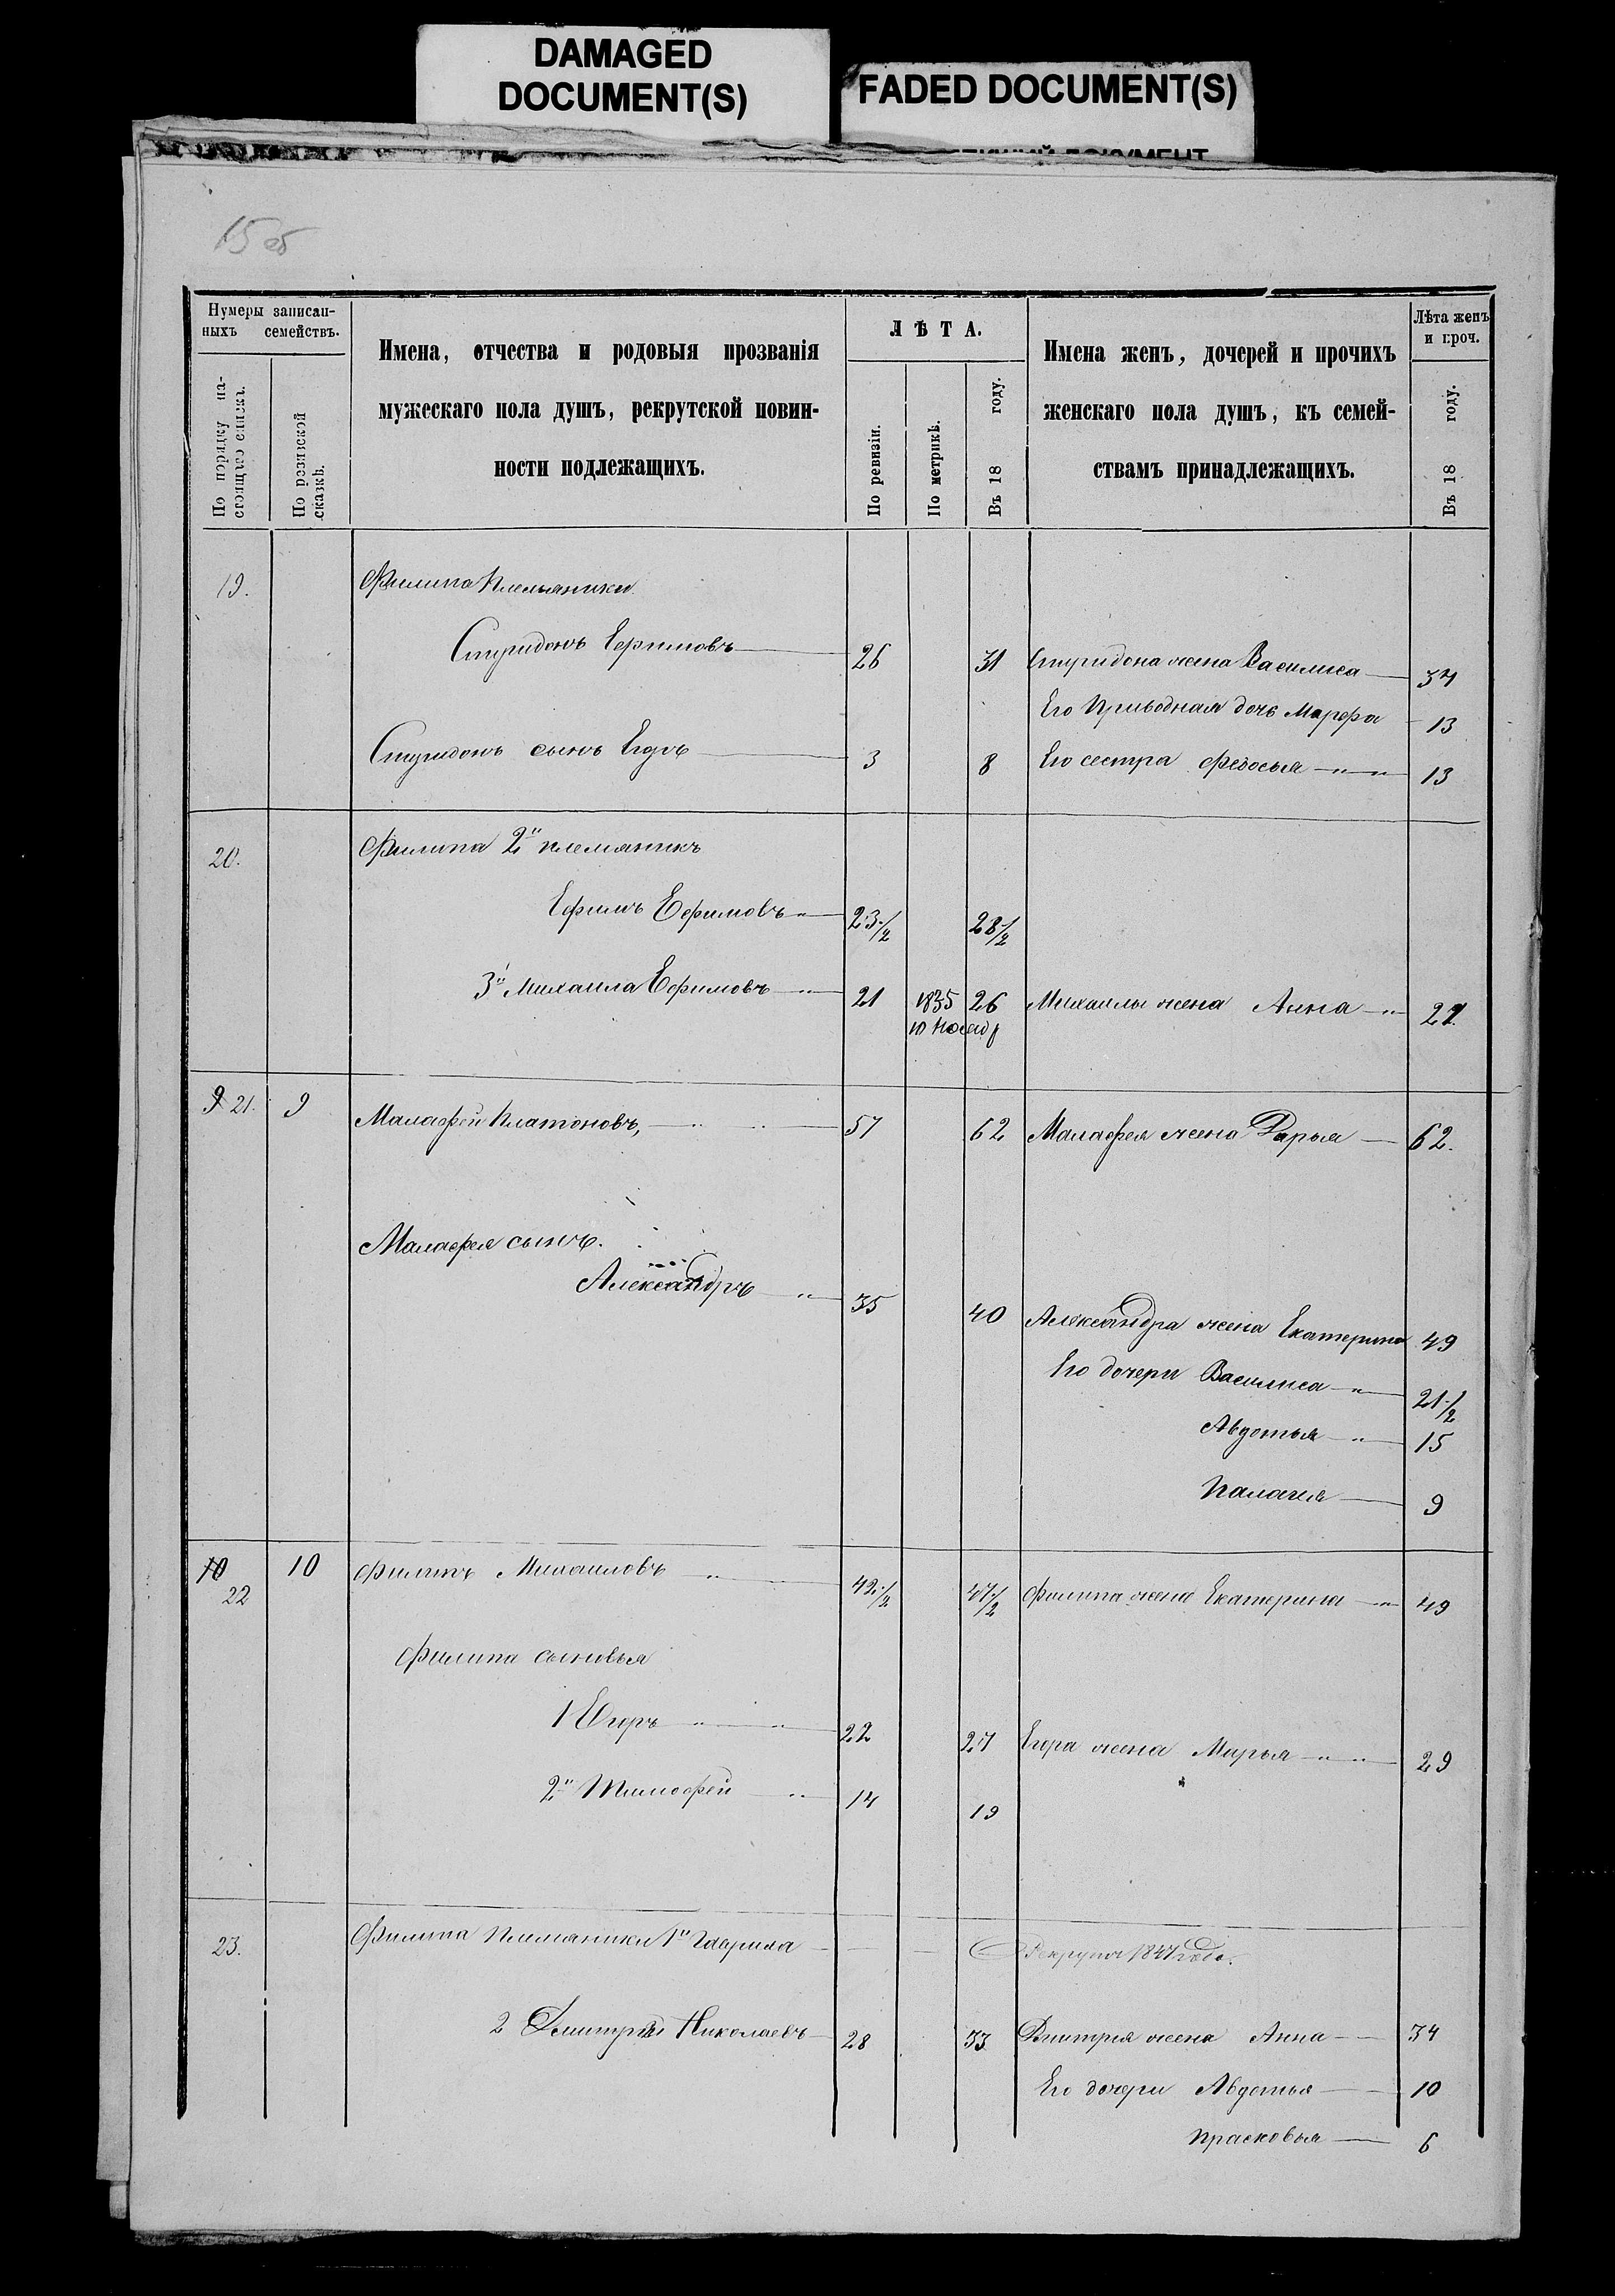 DAMAGED
DOCUMENT(S)
FADED DOCUMENT(S)
15 об
Нумеры записан-
ныхъ семействъ.
По порядку на-
стоящаго списка.
По ревизской
сказкѣ.
Имена, отчества и родовыя прозванія
мужескаго пола душъ, рекрутской повин-
ности подлежащихъ.
ЛѢТА.
По ревизіи.
По метрикѣ.
Въ 18 году.
Имена женъ, дочерей и прочихъ
женскаго пола душъ, къ семей-
ствамъ принадлежащихъ.
Лѣта женъ
и проч.
Въ 18 году.
19. Филипа племяники
Спиридонъ Ефимовъ 26 31 Спиридона жена Василиса 37
Его приводная дочь Марфа 13
Спиридонъ сынъ 3 8 Его сестра Федосья 13
20. Филипа 2й племяникъ
Ефимъ Ефимовъ 23 1/2 28 1/2
3й Михаила Ефимовъ 21 1835 26 Михаилы жена Анна 27
10 Ноября
9 21. 9 Малафей Платоновъ, 57 62 Малафея жена Дарья 62.
Малафея сынъ.
Александръ 35 40 Александра жена Екатерина 49
Его дочери Василиса 21 1/2
Авдотья 15
Палагея 9
10 10 Филипъ Михаиловъ 42 1/2 47 1/2 Филипа жена Екатерина 49
22
Филипа сыновья
1 Егоръ 22 27 Егора жена Марья 29
2й Тимофей 14 19
23. Филипа племяники 1й Гаврила Рекрутъ 1847 года.
2 Дмитрій Николаевъ 28 33 Дмитрія жена Анна 34
Его дочери Авдотья 10
Прасковья 6